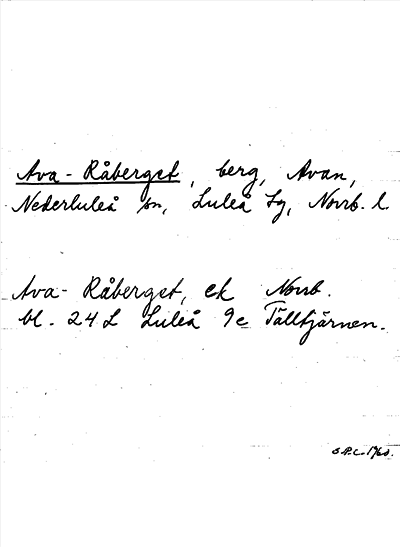 Ava-Råberget, berg, Avan,
Nederluleå sn, Luleå tg, Norrb. l.
Ava-Råberget, ek Norrb.
bl. 24 L Luleå 9c Tälltjärnen.